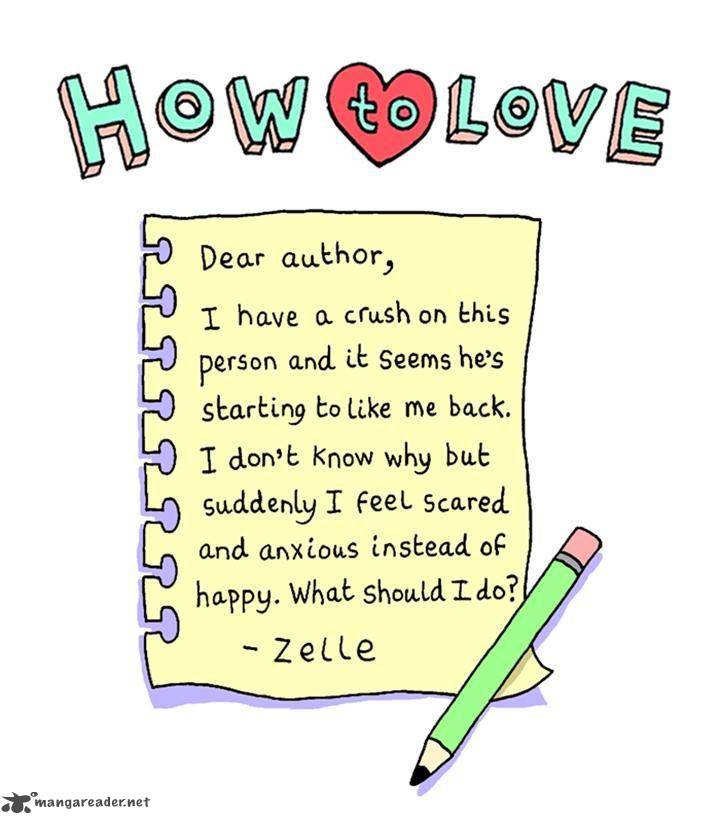 HOW to LOVE
Dear author,
I have a crush on this
person and it seems he's
starting to like me back.
I don't know why but
suddenly I feel scared
and anxious instead of
happy. What should I do?
- Zelle
mangareader.net